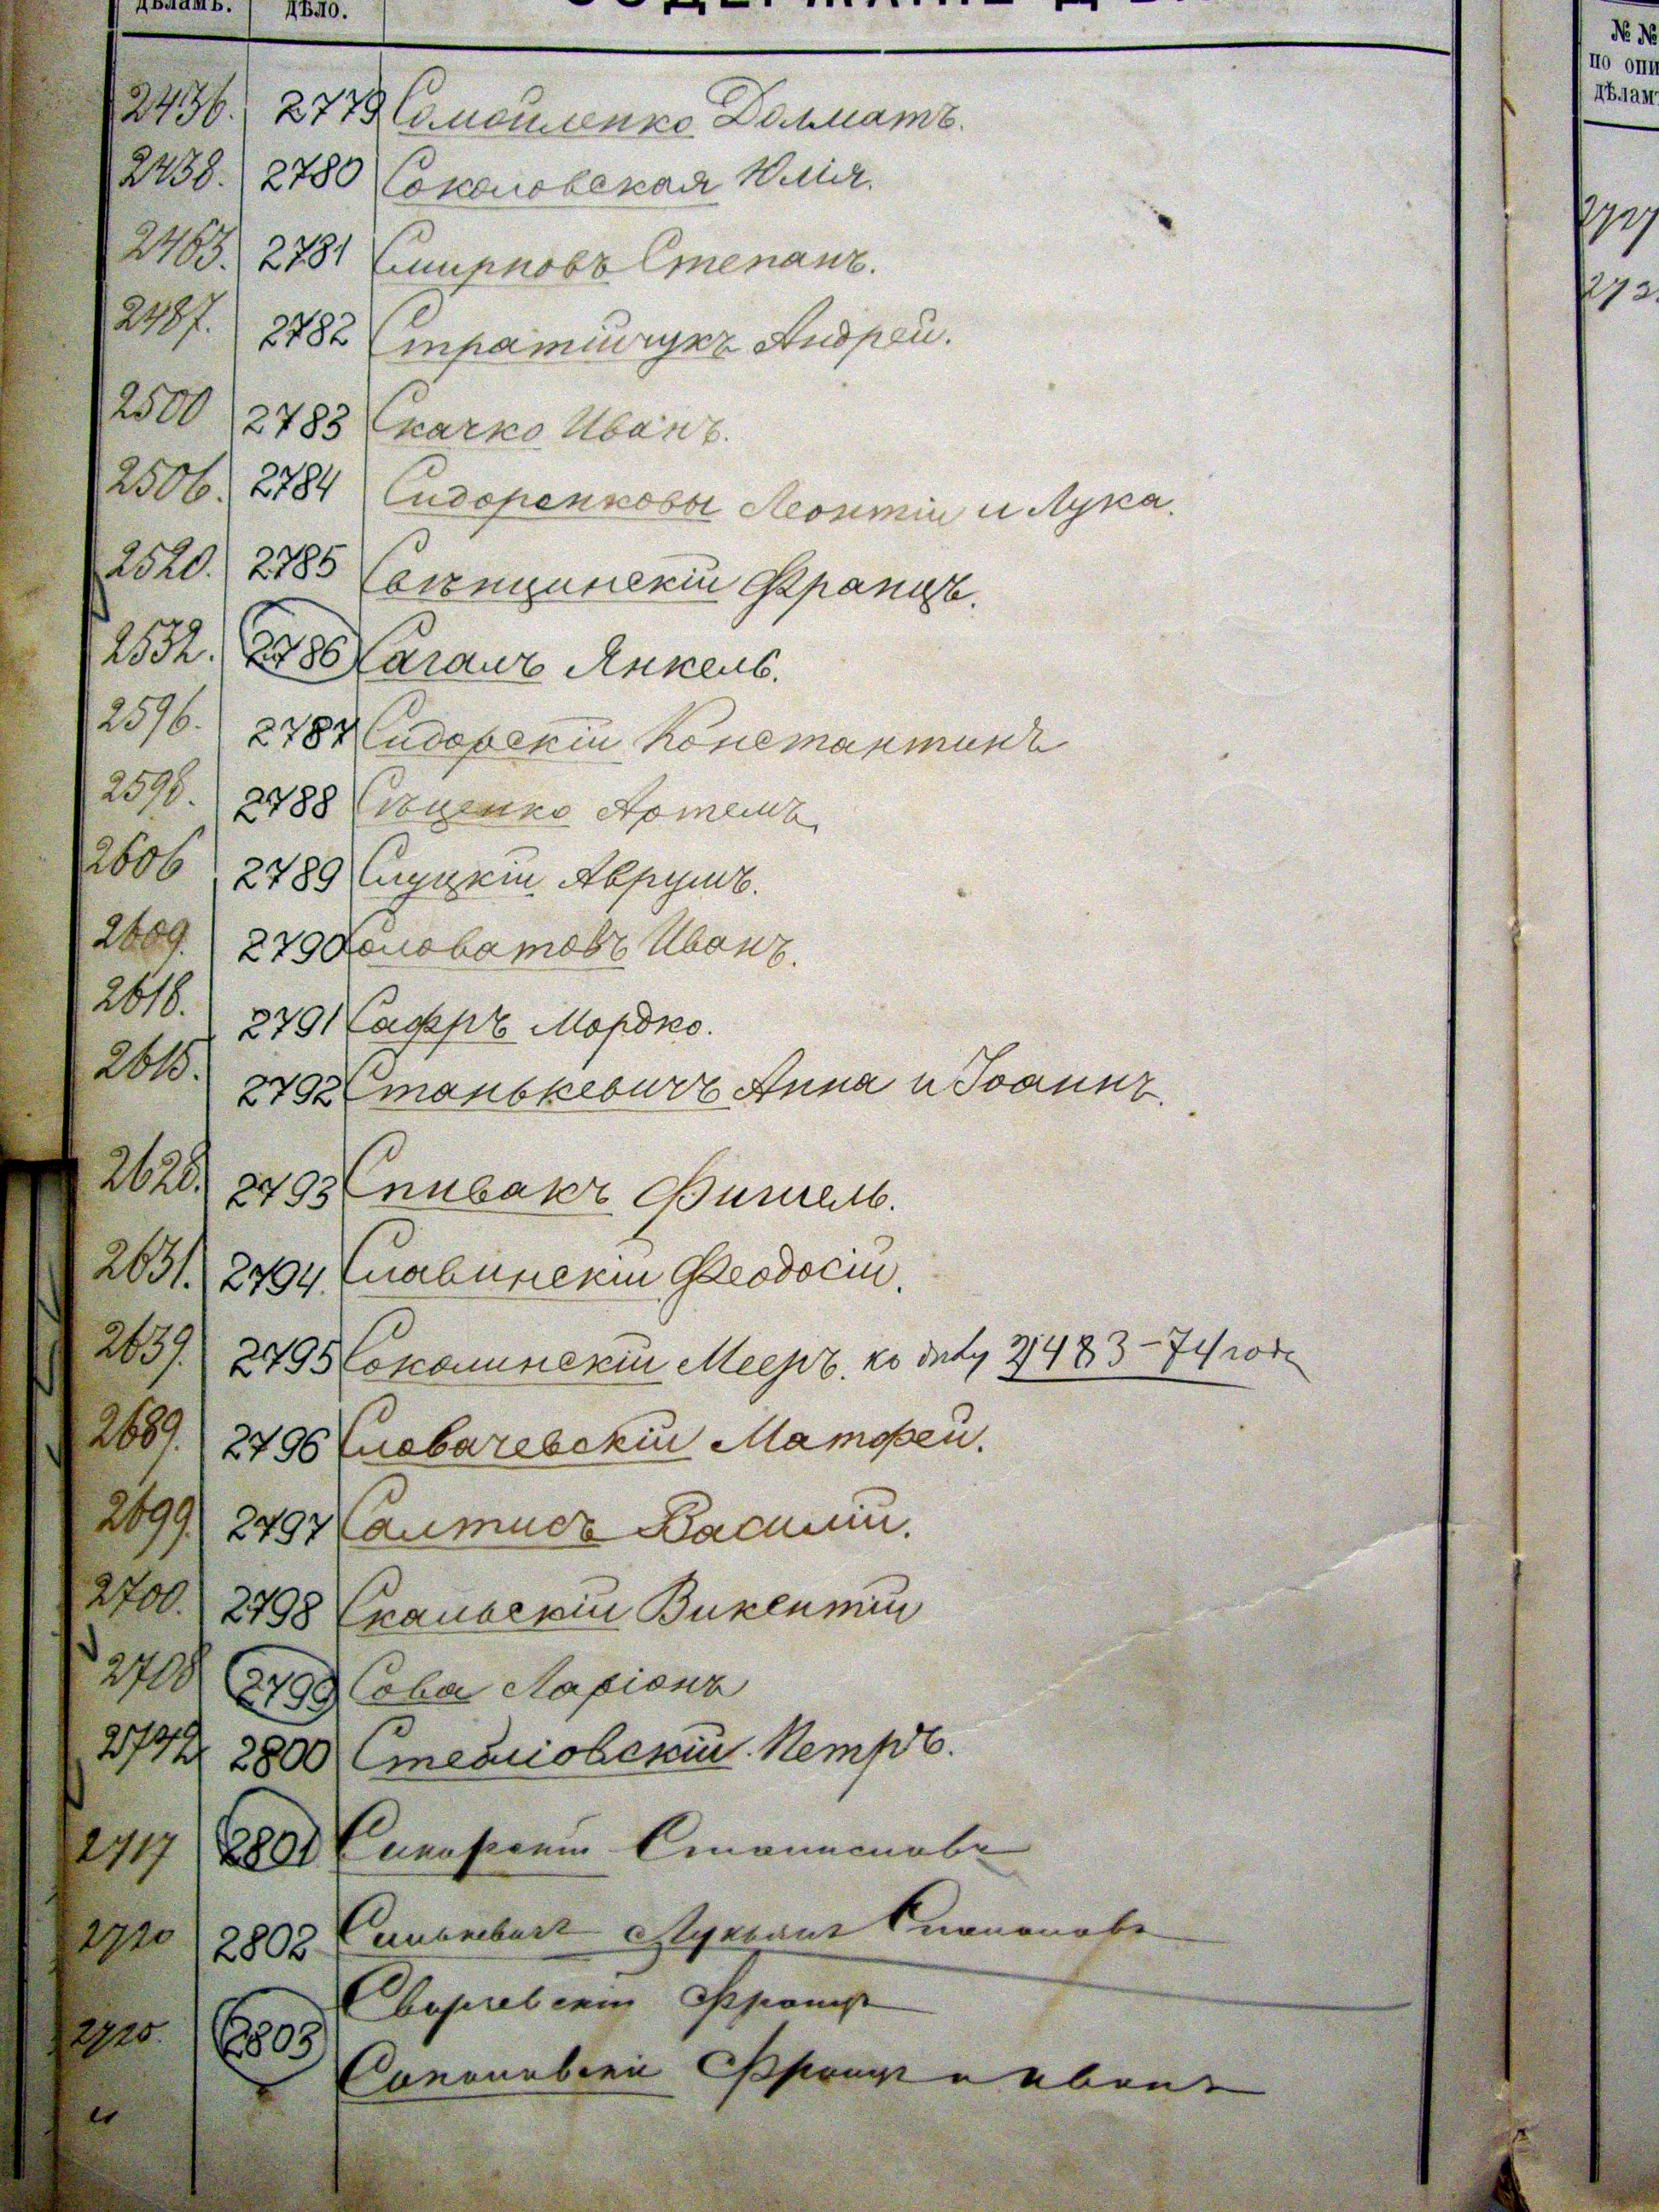 дѣламъ. дѣло. СОДЕРЖАНІЕ
2436. 2779 Самойленко Долматъ.
2438. 2780 Соколовская Юлія.
2463. 2781 Смирновъ Степанъ.
2487. 2782 Стратійчукъ Андрей.
2500 2783 Скачко Иванъ.
2506. 2784 Сидоренковы Леонтій и Лука.
2520. 2785 Свѣнцинскій Францъ.
2532. 2786 Сагалъ Янкель.
2596. 2787 Сидорскій Константинъ
2598. 2788 Сѣценко Артемъ
2606 2789 Слуцкій Аврумъ.
2609. 2790 Соловатовъ Иванъ.
2618. 2791 Сафръ Мордко.
2615. 2792 Станькевичъ Анна и Іоаннъ.
2628. 2793 Спивакъ Фишель.
2631. 2794. Славинскій Феодосій.
2639. 2795 Соколинскій Мееръ. къ дѣлу 21483-74 года
2689. 2796 Словачевскій Матфей.
2699. 2797 Салтисъ Василій.
2700. 2798 Скальскій Викентій
2708 2799 Сова Ларіонъ
2742 2800 Стебліовскій Петръ.
2717 2801 Сикорскій Станиславъ
2720 2802 Синькевичъ Лукьянъ
2725. 2803 Сворчевскій Францъ
и Соколовскій Францъ и Иванъ
№ №
по опи
дѣламъ
2727
273